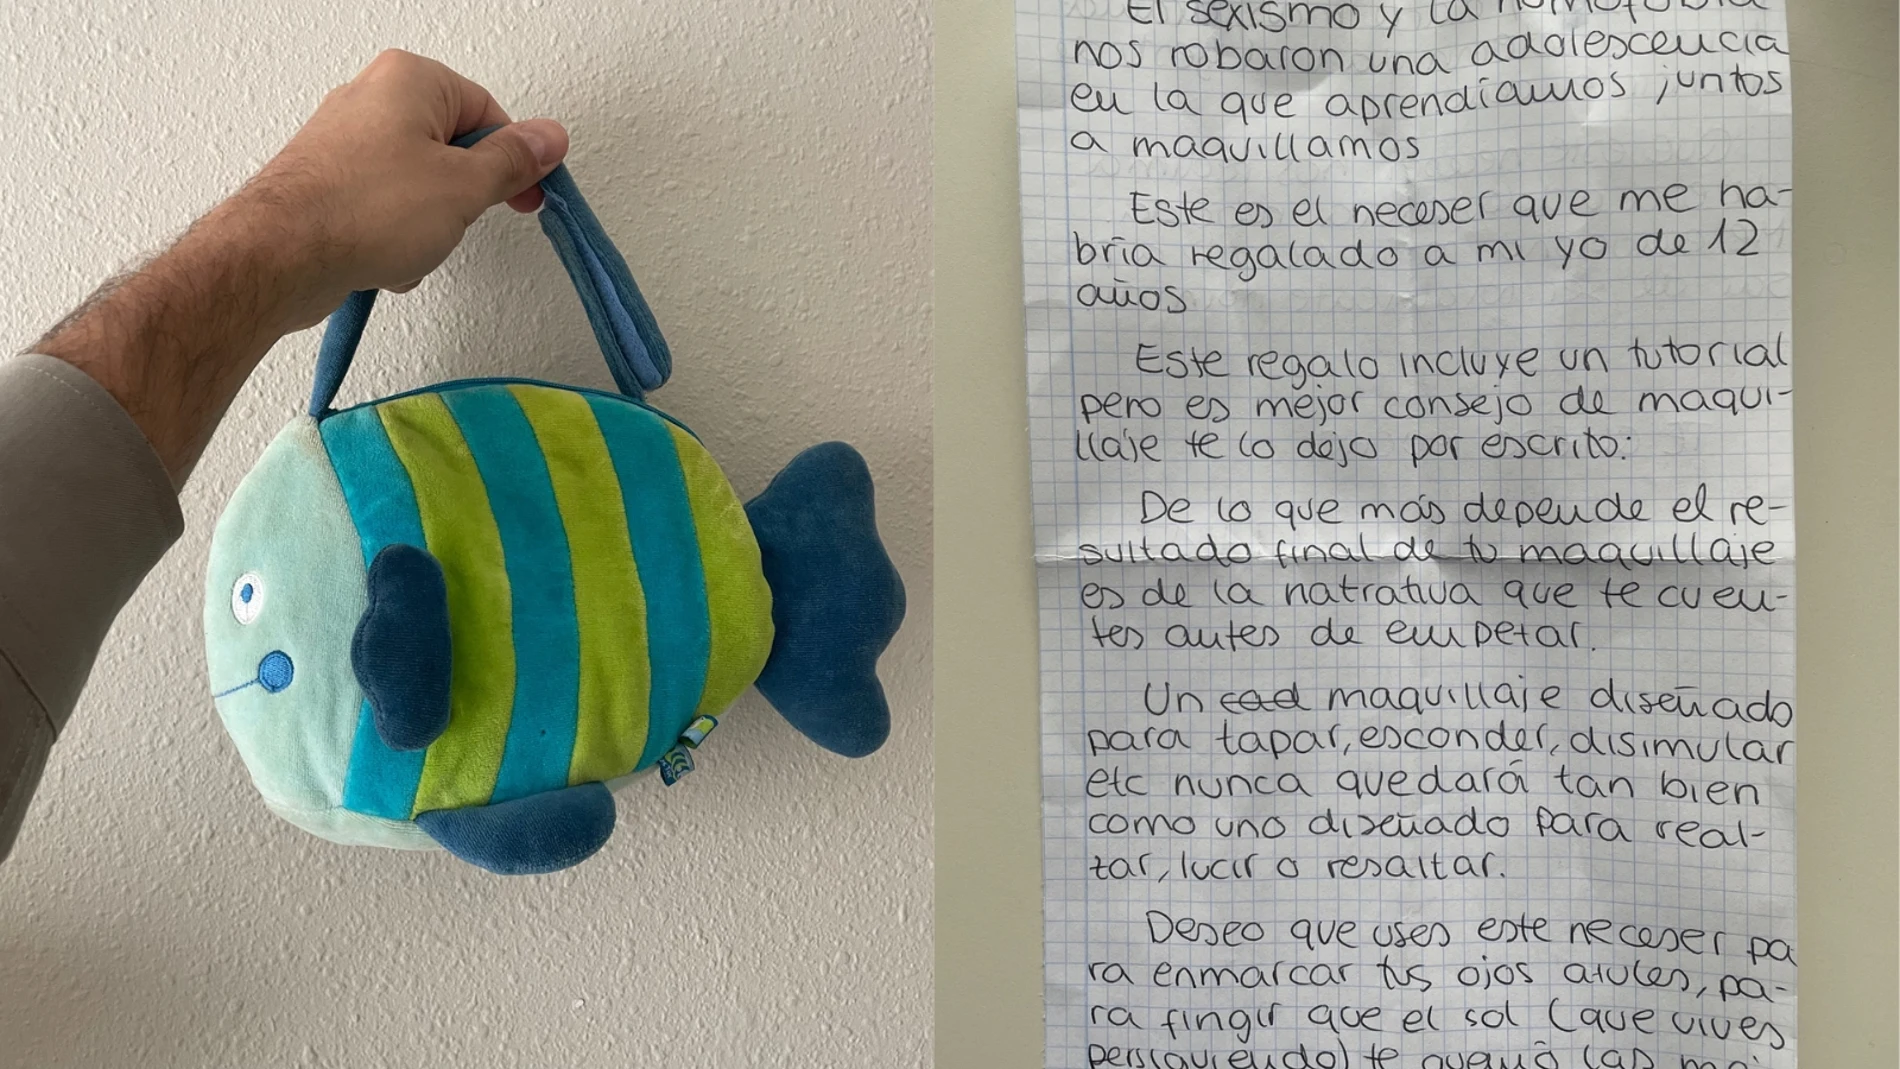 El sexismo y la homofobia
nos robaron una adolescencia
en la que aprendíamos juntos
a maquillarnos
Este es el neceser que me ha-
bría regalado a mi yo de 12
años
Este regalo incluye un tutorial
pero es mejor consejo de maqui-
llaje te lo dejo por escrito:
De lo que más depende el re-
sultado final de tu maquillaje
es de la narrativa que te cuen-
tes antes de empezar.
Un cad maquillaje diseñado
para tapar, esconder, disimular
etc nunca quedará tan bien
como uno diseñado para real-
zar, lucir o resaltar.
Deseo que uses este neceser pa
ra enmarcar tus ojos azules, pa-
ra fingir que el sol (que vives
persiguiendo) te quemó las me